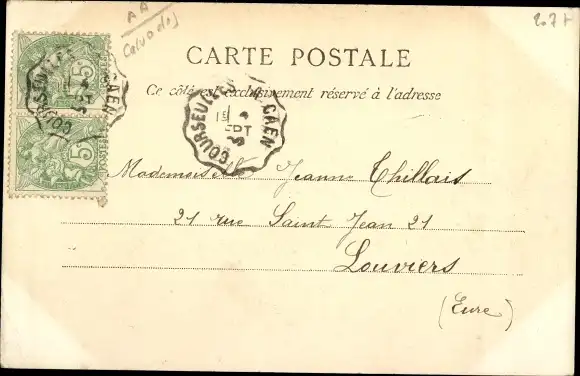 AA
Calvados
CARTE POSTALE
Ce côté est exclusivement réservé à l'adresse
5c
5c
COURSEULLES
CAEN
COURSEULLES
CAEN
SEPT
Mademoiselle Jeanne Thillais
21 rue Saint Jean 21
Louviers
(Eure)